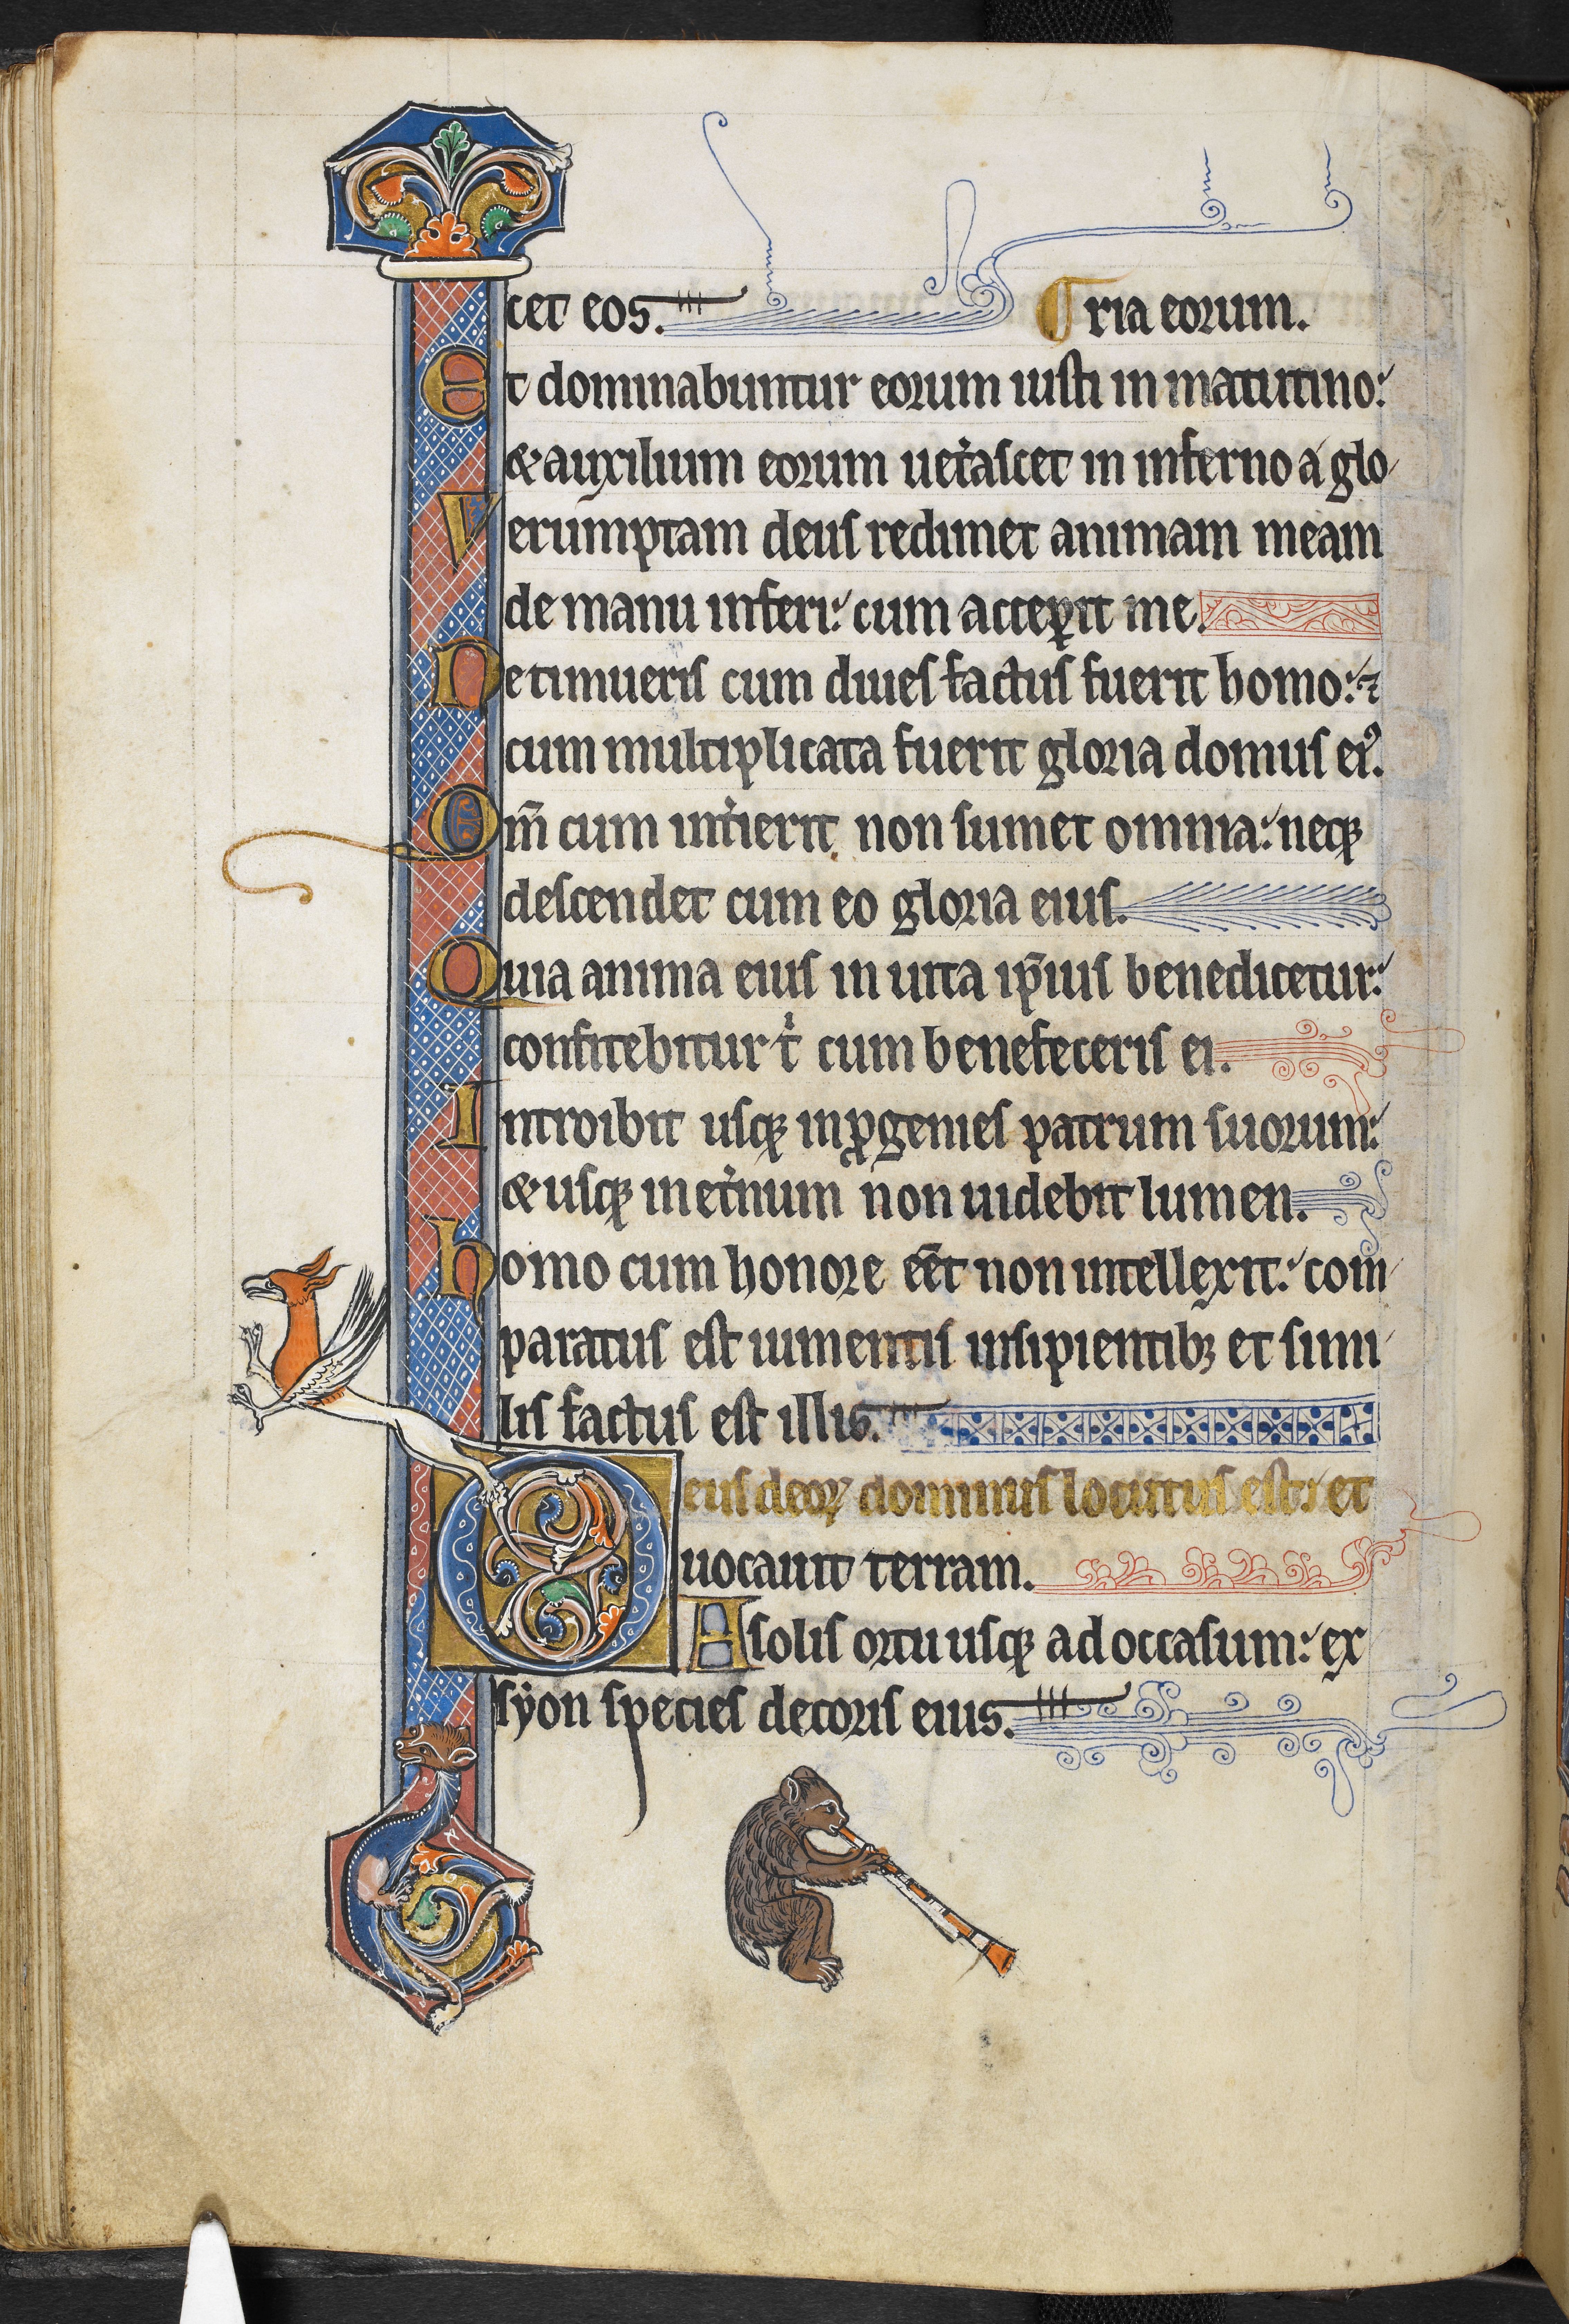 cet eos. ria eorum.
Et dominabuntur eorum iusti in matutino:
& auxilium eorum uet̾ascet in inferno a glo
Verumptam deus redimet animam meam
de manu inferi: cum acceꝑit me.
Ne timueris cum diues factus fuerit homo: ⁊
cum multiplicata fuerit gloria domus eiꝰ.
Qm̄ cum int̾ierit non sumet omnia: neqꝫ
descendet cum eo gloria eius.
Quia anima eius in uita ip̄ius benedicetur:
confitebitur tͥ cum benefeceris ei.
Introibit usqꝫ in ꝓgenies patrum suorum:
& usqꝫ in et̾num non uidebit lumen.
homo cum honore eēt non intellexit: com
paratus est iumentis insipientibꝫ et simi
lis factus est illis.
Deus deoꝝ dominus locutus est: et
uocauit terram.
A solis ortu usqꝫ ad occasum: ex
sẏon species decoris eius.